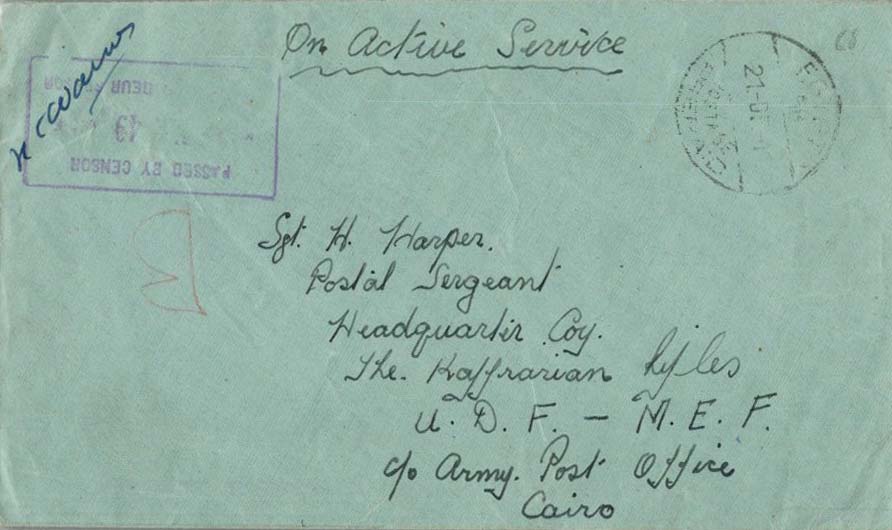 On Active Service
PASSED BY CENSOR
Sgt. H. Harper.
Postal Sergeant
Headquarter Coy.
The. Kaffrarian Rifles
U. D. F. — M. E. F.
c/o Army. Post Office
Cairo